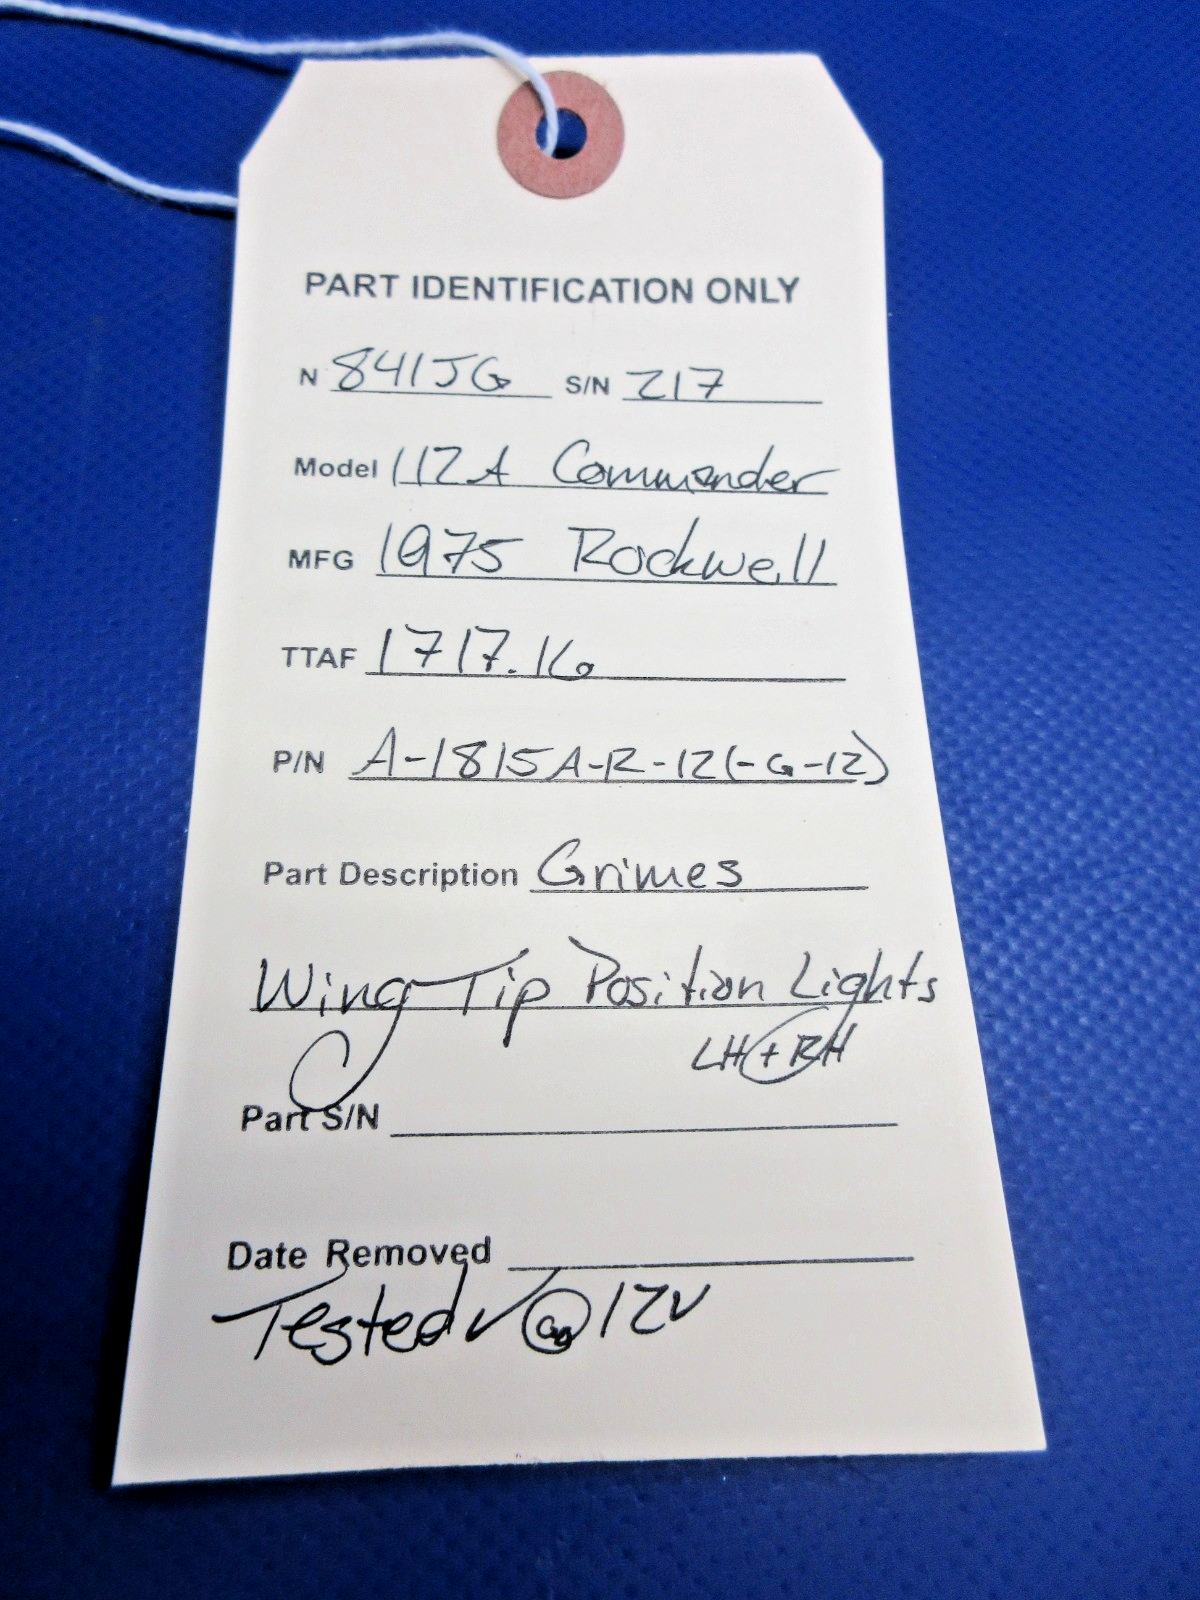 PART IDENTIFICATION ONLY
N 841JG S/N 217
Model 112A Commander
MFG 1975 Rockwell
TTAF 1717.16
P/N A-1815A-R-12(-G-12)
Part Description Grimes
Wing Tip Position Lights
LH + RH
Part S/N
Date Removed
Tested ✓ @ 12V